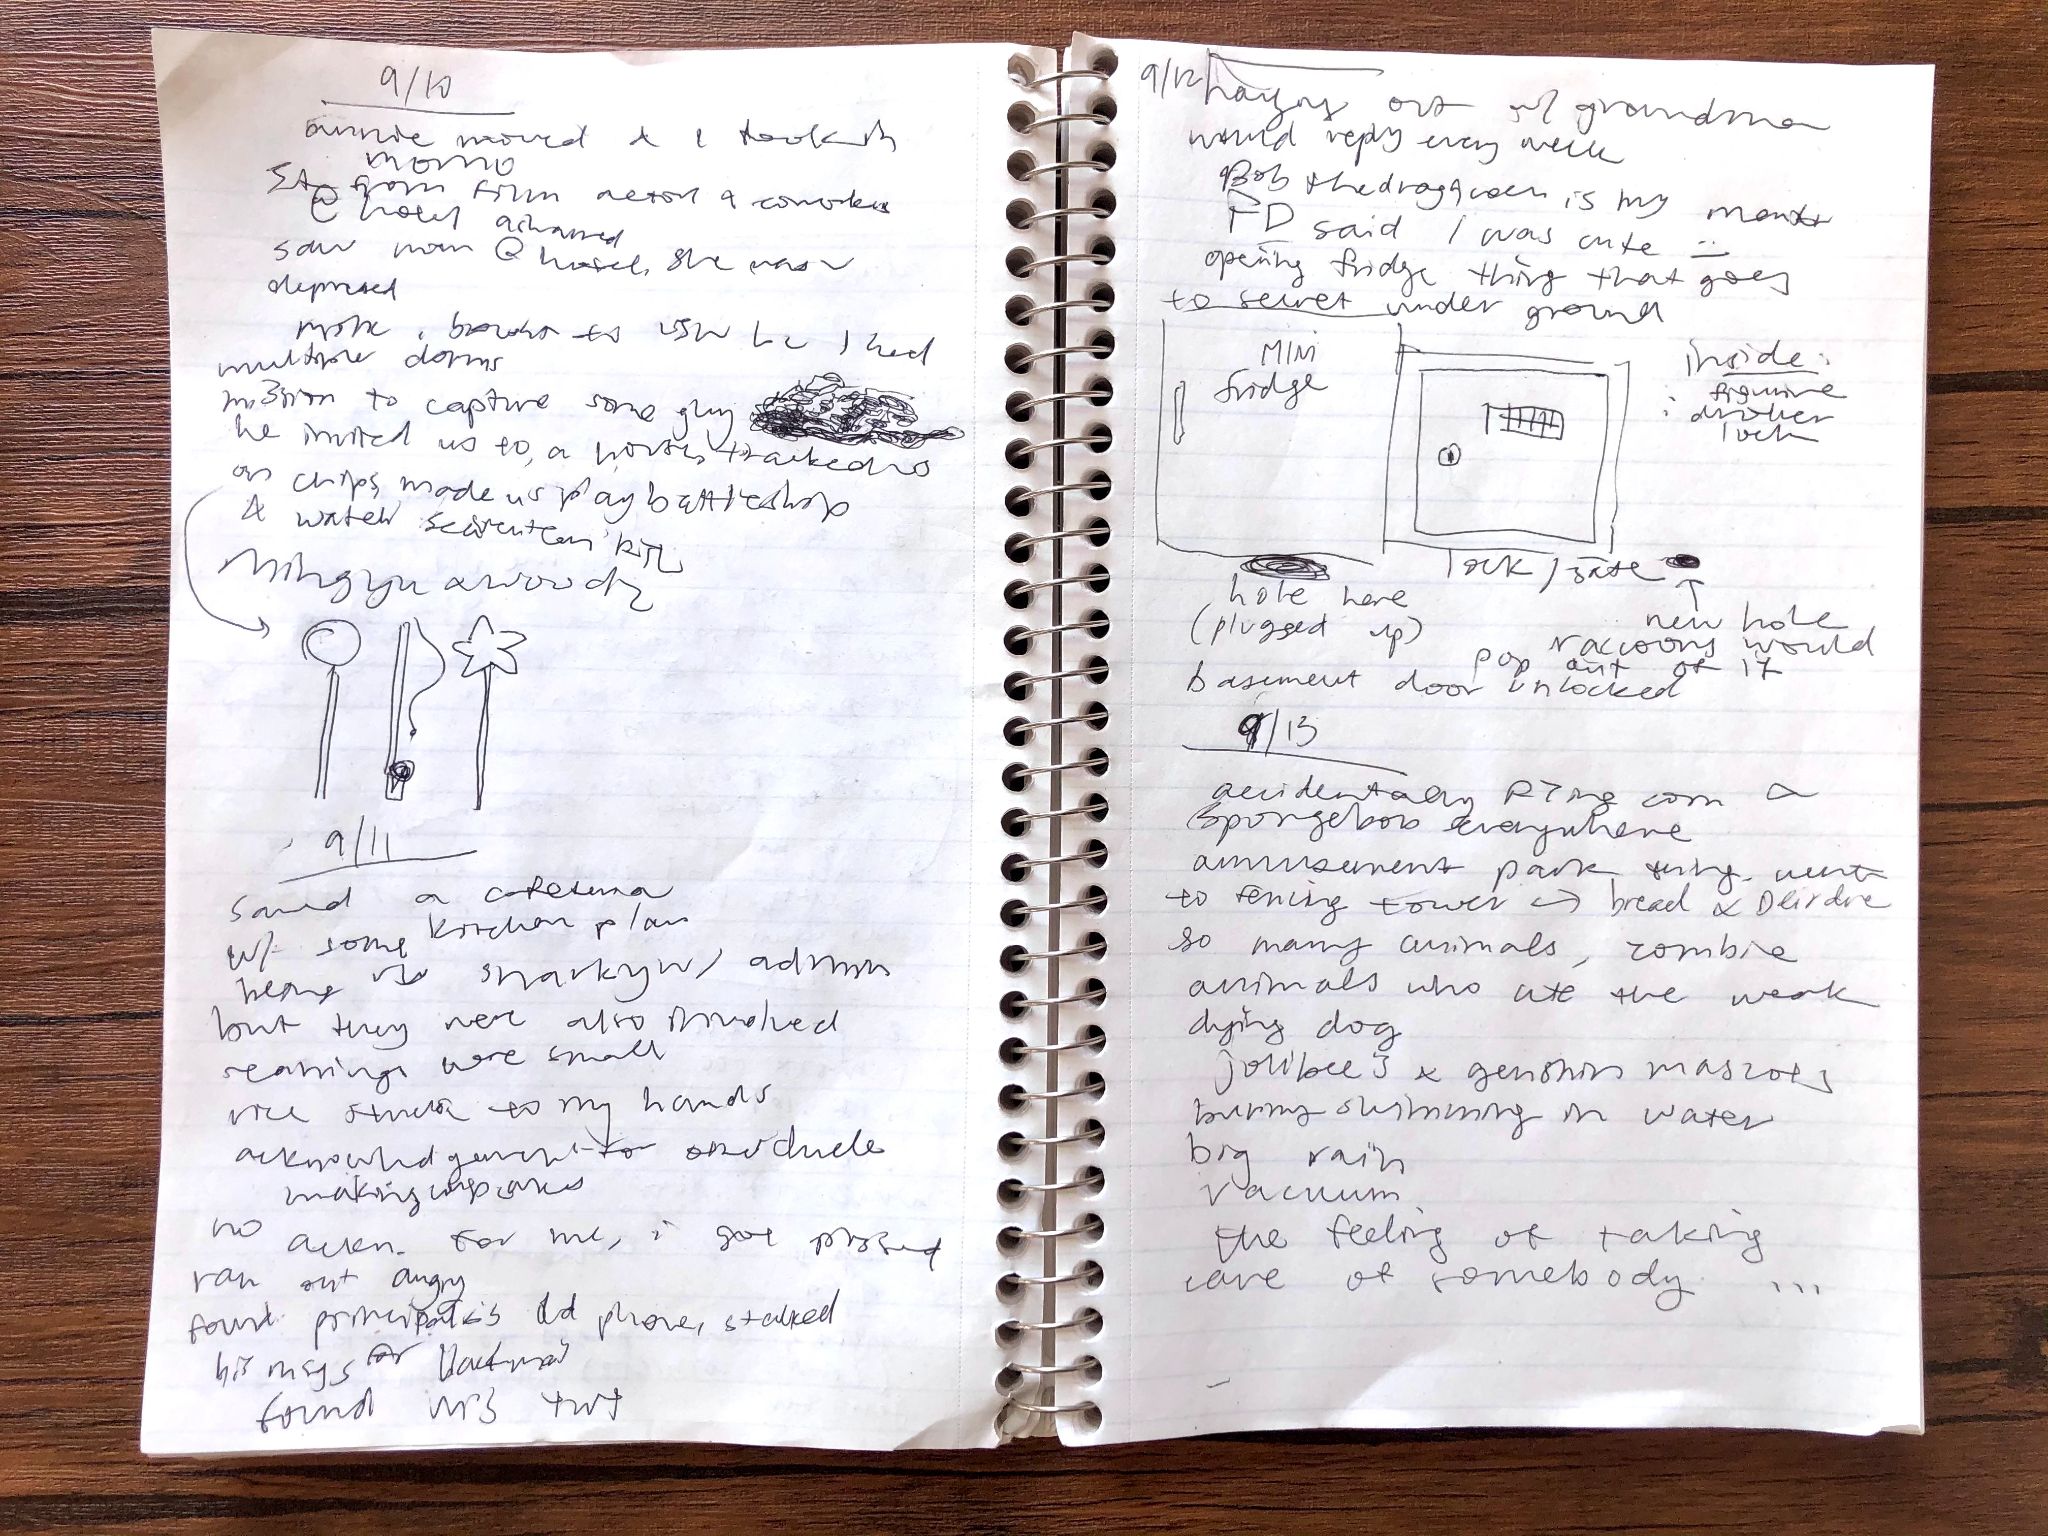 9/10
moved & I took
momo
from film
@ hotel
saw mom @ hotel, she was
depressed
to usw bc I had
multiple dorms
mission to capture some guy
he invited us to a house, tracked us
on chips, made us play battleship
& water
Mingyu &
9/11
saved a cafeteria
w/ some kitchen plan
being snarky w/ admin
but they were also involved
servings were small
rice stuck to my hands
acknowledgement for
making cupcakes
no ackn. for me, i got pissed
ran out angry
found principal's old phone, stalked
his msgs for blackmail
found his twt
9/12
hanging out w/ grandma
would reply every week
Bob the drag queen is my
FD said I was cute :)
opening fridge thing that goes
to secret under ground
MINI
fridge
inside:
figurine
: another
lock
lock / safe
hole here
(plugged up)
new hole
raccoons would
pop out of it
basement door unlocked
9/13
accidentally RTing corn &
Spongebob everywhere
amusement park thing. went
to fencing tower → bread & Deirdre
so many animals, zombie
animals who ate the weak
dying dog
jollibee's & genshin mascots
bunny swimming in water
big rain
vacuum
the feeling of taking
care of somebody ...